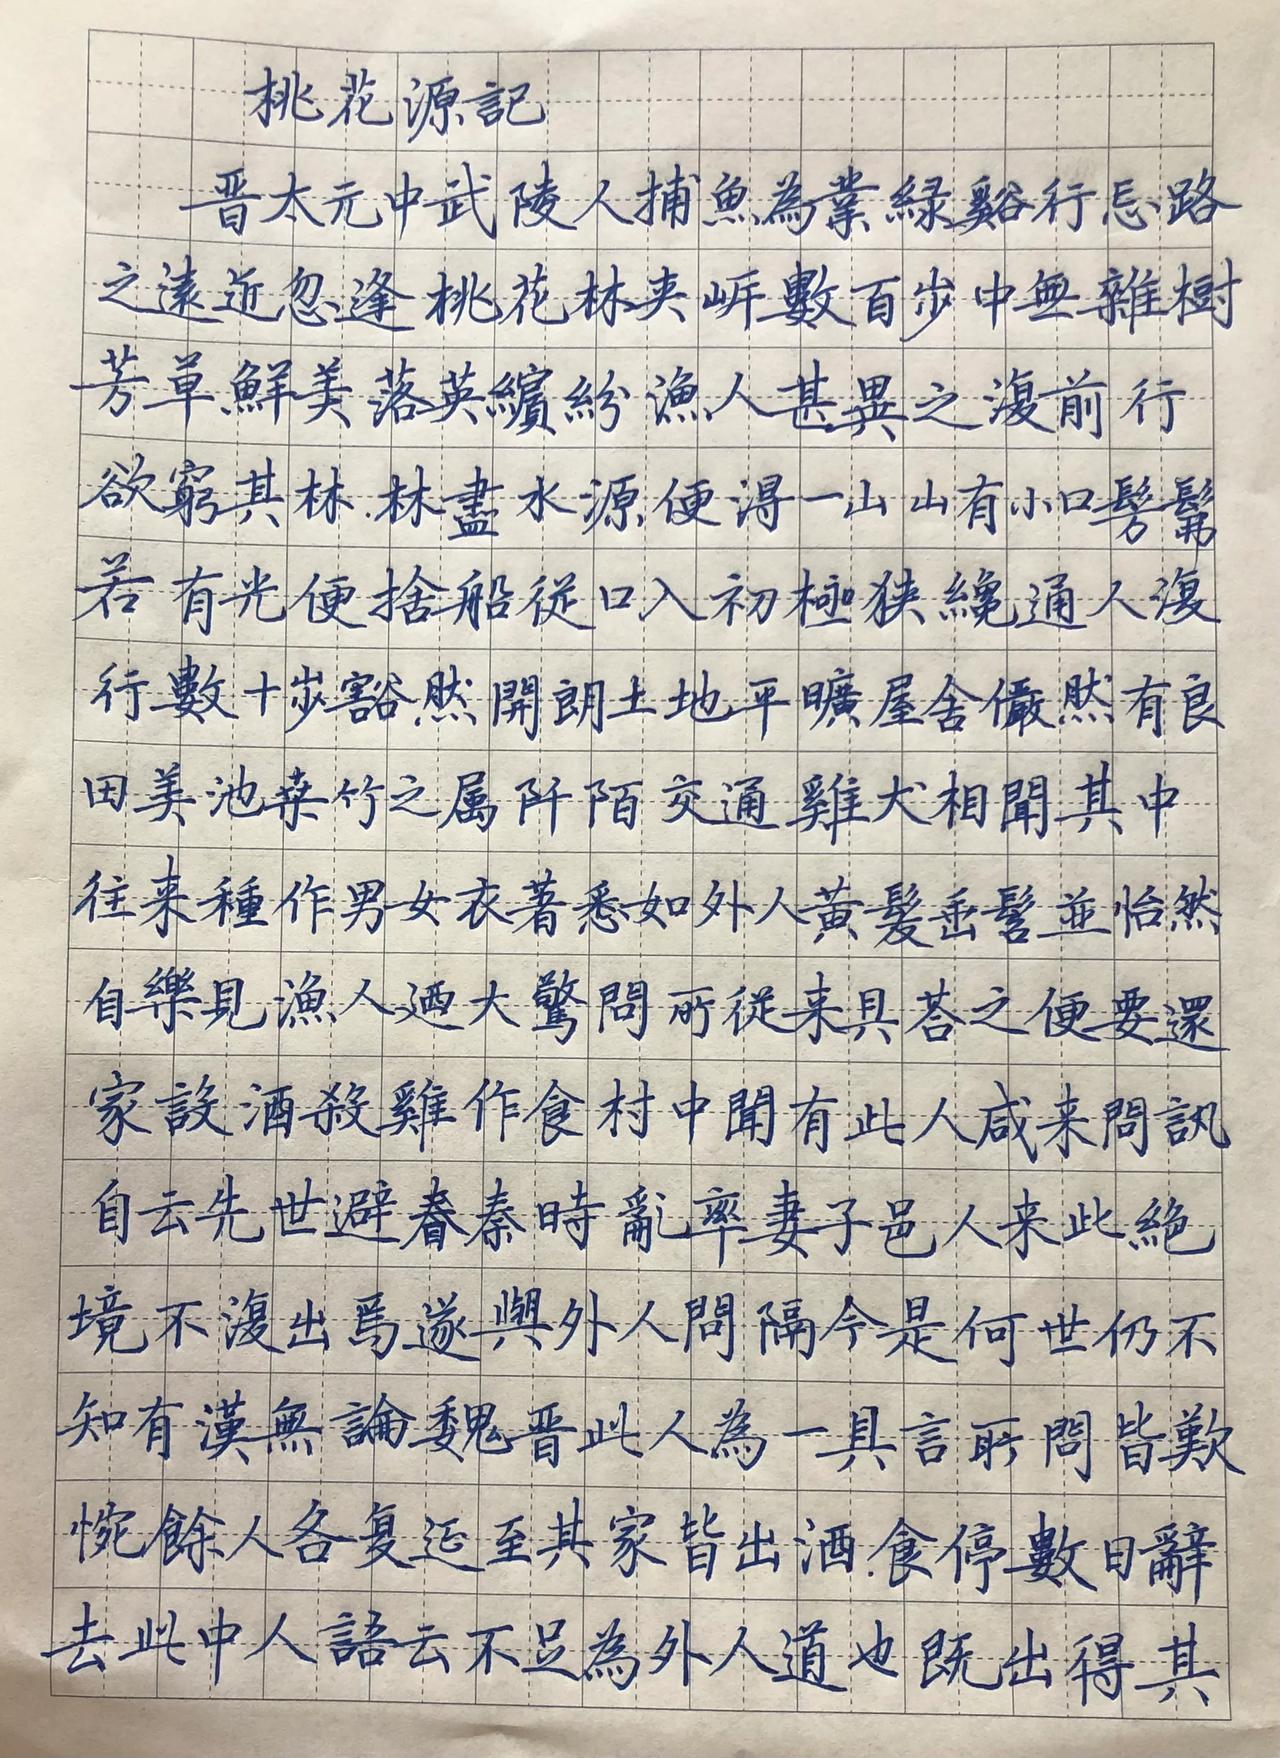 桃花源記
晋太元中武陵人捕魚為業緑谿行忘路
之遠近忽逢桃花林夹岍數百步中無雜樹
芳草鮮美落英繽紛漁人甚異之復前行
欲窮其林林盡水源便得一山山有小口髣髴
若有光便捨船從口入初極狭纔通人復
行數十步豁然開朗土地平曠屋舍儼然有良
田美池桒竹之属阡陌交通雞犬相聞其中
往来種作男女衣著悉如外人黄髮垂髫並怡然
自樂見漁人廼大驚問所從来具荅之便要還
家設酒殺雞作食村中聞有此人咸来問訊
自云先世避秦時亂率妻子邑人来此絶
境不復出焉遂與外人間隔今是何世仍不
知有漢無論魏晋此人為一具言所問皆歎
惋餘人各复延至其家皆出酒食停數日辭
去此中人語云不足為外人道也既出得其